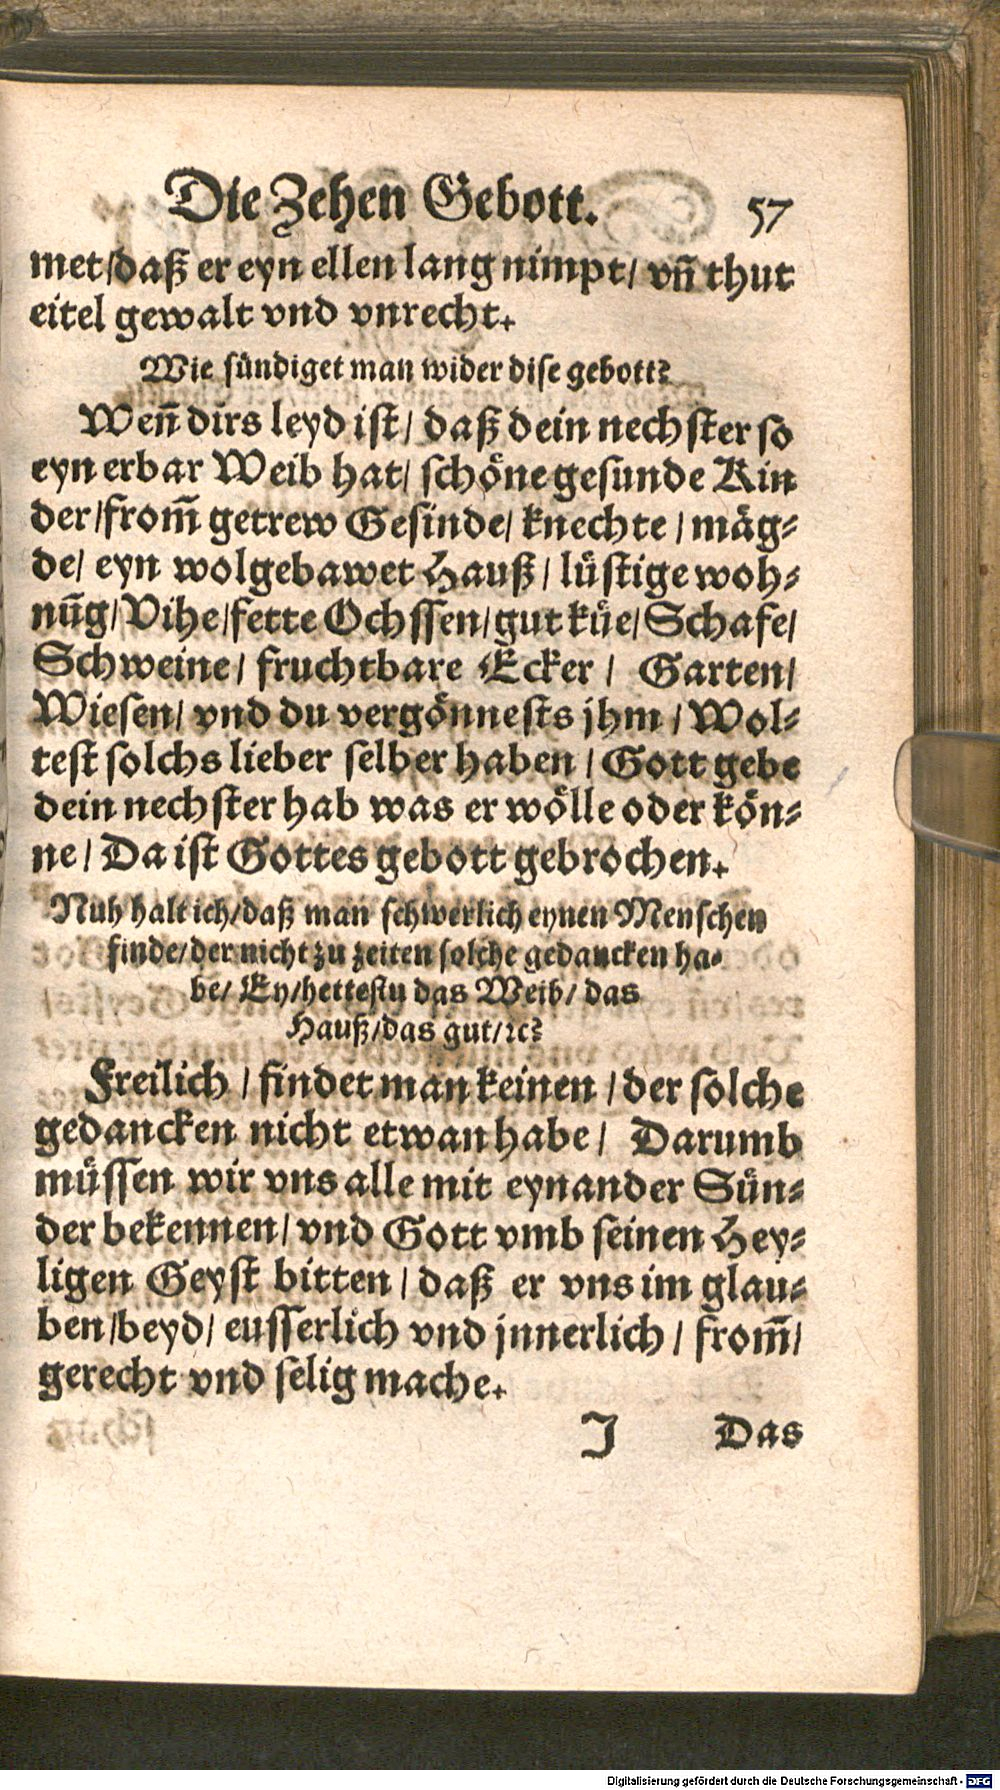 Die Zehen Gebott. 57
met/daß er eyn ellen lang nimpt/ vñ thut
eitel gewalt vnd vnrecht.
Wie sündiget man wider dise gebott?
Weñ dirs leyd ist/ daß dein nechster so
eyn erbar Weib hat/ schöne gesunde Kin
der/from̃ getrew Gesinde/ knechte/ mäg⸗
de/ eyn wolgebawet Hauß/ lüstige woh⸗
nũg/Vihe/fette Ochssen/gut küe/Schafe/
Schweine/ fruchtbare Ecker/ Garten/
Wiesen/ vnd du vergönnests jhm/ Wol⸗
test solchs lieber selber haben/ Gott gebe
dein nechster hab was er wölle oder kön⸗
ne/ Da ist Gottes gebott gebrochen.
Nuh halt ich/daß man schwerlich eynen Menschen
finde/der nicht zu zeiten solche gedancken ha⸗
be/ Ey/hettestu das Weib/ das
Hauß/das gut/ꝛc?
Freilich/ findet man keinen/der solche
gedancken nicht etwan habe/ Darumb
müssen wir vns alle mit eynander Sün⸗
der bekennen/ vnd Gott vmb seinen Hey⸗
ligen Geyst bitten/ daß er vns im glau⸗
ben/beyd/ eusserlich vnd jnnerlich/ from̃/
gerecht vnd selig mache.
J Das
Digitalisierung gefördert durch die Deutsche Forschungsgemeinschaft - DFG